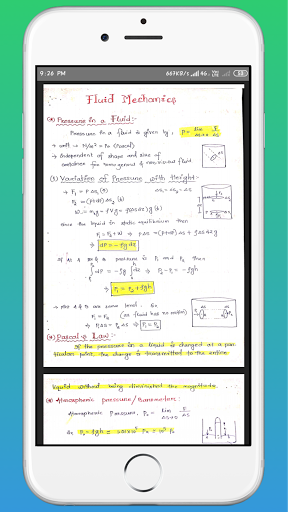 9:26 PM 667KB/s 4G
Fluid Mechanics
(*) Pressure in a Fluid:-
Pressure in a fluid is given by, P = lim ΔS→0 F/ΔS
→ unit → N/m² = Pa (Pascal)
→ Independent of shape and size of
container for same ground & non-viscous fluid
(*) Variation of Pressure with Height:-
→ F₁ = P ΔS₁ (↑) ΔS₁ = ΔS₂ = ΔS
F₂ = (P+dP) ΔS₂ (↓)
Since the liquid in static equilibrium then
F₁ = F₂ + W ⇒ PΔS = (P+dP) ΔS + ρΔSdz g
⇒ dP = -ρg dz
pressure is P₁ and P₂ then
⇒ P₂ - P₁ = -ρgh
⇒ P₁ = P₂ + ρgh
→ are same level.
P₁ = P₂ (as fluid has no motion)
⇒ P₁ΔS = P₂ΔS ⇒ P₁ = P₂
(*) Pascal's Law:-
If the pressure in a liquid is changed at a par-
ticular point, the change is transmitted to the entire
liquid without being diminished the magnitude.
(*) Atmospheric pressure/Barometer:-
Atmospheric Pressure, P₀ = lim ΔS→0 F/ΔS
P₀ = ρgh